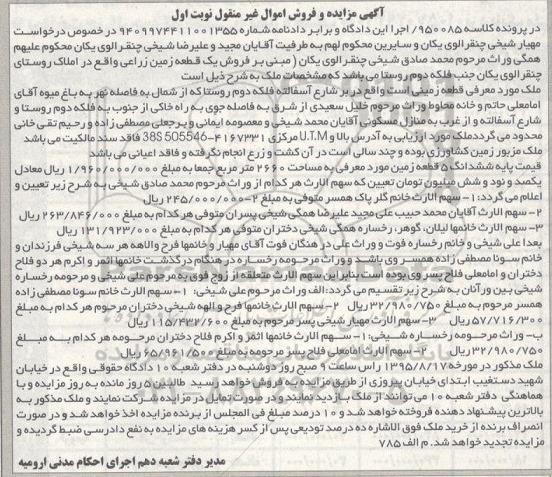 آگهی مزایده و فروش اموال غیر منقول نوبت اول
در پرونده کلاسه ۹۵۰۰۸۵/ اجرا این دادگاه و برابر دادنامه شماره ۹۴۰۹۹۷۴۴۱۱۰۰۱۳۵۵ در خصوص درخواست
مهیار شیخی چنقرالوی یکان و سایرین محکوم لهم به طرفیت آقایان مجید و علیرضا شیخی چنقرالوی یکان محکوم علیهم
همگی وراث مرحوم محمد صادق شیخی چنقرالوی یکان ( مبنی بر فروش یک قطعه زمین زراعی واقع در املاک روستای
چنقرالوی یکان جنب فلکه دوم روستا می باشد که مشخصات ملک به شرح ذیل است
ملک مورد معرفی قطعه زمینی است واقع در بر شارع آسفالته فلکه دوم روستا که از شمال به فاصله نهر به باغ میوه آقای
امامعلی حاتم و خانه محاوط وراث مرحوم خلیل سعیدی از شرق به فاصله جوی به راه خاکی از جنوب به فلکه دوم روستا و
شارع آسفالته و از غرب به منازل مسکونی آقایان محمد شیخی و معصومه ایمانی و پرجعلی مصطفی زاده و رحیم تقی خانی
محدود می گردد ملک مورد ارزیابی به آدرس بالا و U.T.M مرکزی ۴۱۶۷۳۳۱-505546 38S فاقد سند مالکیت می باشد
ملک مزبور زمین کشاورزی بوده و چند سالی است در آن کشت و زرع انجام نگرفته و فاقد اعیانی می باشد
قیمت پایه ششدانگ ۵ قطعه زمین مورد معرفی به مساحت ۲۶۶۰ متر مربع جمعا به مبلغ ۱/۹۶۰/۰۰۰/۰۰۰ ریال معادل
یکصد و نود و شش میلیون تومان تعیین که سهم الارث هر کدام از وراث مرحوم محمد صادق شیخی به شرح زیر تعیین و
اعلام می گردد: ۱- سهم الارث خانم گلر پاک همسر متوفی به مبلغ ۲۴۵/۰۰۰/۰۰۰-۲ ریال
۲- سهم الارث آقایان محمد حبیب علی مجید علیرضا همگی شیخی پسران متوفی هر کدام به مبلغ ۲۶۳/۸۴۶/۰۰۰ ریال
۳- سهم الارث خانمها لیلان، گوهر، رخساره همگی شیخی دختران متوفی هر کدام به مبلغ ۱۳۱/۹۲۳/۰۰۰ ریال
بعدا علی شیخی و خانم رخساره فوت و وراث علی در هنگام فوت آقای مهیار و خانمها فرح و الاهه هر سه شیخی فرزندان و
خانم سونا مصطفی زاده همسر وی باشد و وراث مرحومه رخساره در هنگام درگذشت خانمها اثمر و اکرم هر دو فلاح
دختران و امامعلی فلاح پسر وی بوده است بنابراین سهم الارث متعلقه از زوج فوق به مرحوم علی شیخی و مرحومه رخساره
شیخی بین ورآنان به شرح زیر تقسیم می گردد: الف وراث مرحوم علی شیخی: ۱- سهم الارث خانم سونا مصطفی زاده
همسر مرحوم به مبلغ ۳۲/۹۸۰/۷۵۰ ریال ۲- سهم الارث خانمها فرح و الهه شیخی دختران مرحوم هر کدام به مبلغ
۵۷/۷۱۶/۳۰۰ ریال ۳- سهم الارث مهیار شیخی پسر مرحوم به مبلغ ۱۱۵/۴۳۲/۶۰۰ ریال
ب- وراث مرحومه رخساره شیخی: ۱- سهم الارث خانمها اثمر و اکرم فلاح دختران مرحومه هر کدام به مبلغ
۳۲/۹۸۰/۷۵۰ ریال ۲- سهم الارث امامعلی فلاح پسر مرحومه به مبلغ ۶۵/۹۶۱/۵۰۰ ریال
ملک مذکور در مورخه ۱۳۹۵/۸/۱۷ راس ساعت ۹ صبح روز دوشنبه در دفتر شعبه ۱۰ دادگاه حقوقی واقع در خیابان
شهید دستغیب ابتدای خیابان پیروزی از طریق مزایده به فروش خواهد رسید طالبین ۵ روز مانده به روز مزایده و با
هماهنگی دفتر شعبه ۱۰ می توانند از ملک بازدید نمایند و در صورت تمایل در مزایده شرکت نمایند و ملک مذکور به
بالاترین پیشنهاد دهنده فروخته خواهد شد و ۱۰ درصد مبلغ فی المجلس از برنده مزایده اخذ خواهد شد و در صورت
انصراف برنده از خرید ملک فوق الاشاره ده درصد تودیعی پس از کسر هزینه های مزایده به نفع دادرسی ضبط گردیده و
مزایده تجدید خواهد شد. م الف ۷۸۵
مدیر دفتر شعبه دهم اجرای احکام مدنی ارومیه